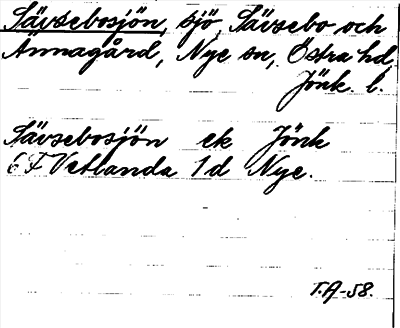 Sävsebosjön, sjö, Sävsebo och
Ännagård, Nye sn, Östra hd
Jönk. l.
Sävsebosjön ek Jönk
6 F Vetlanda 1 d Nye.
T.A-58.